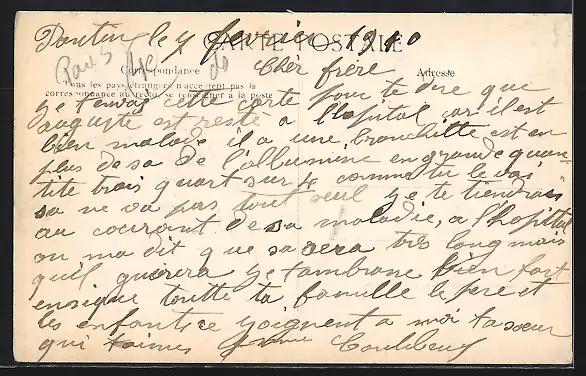 Pantin le 7 fevrier 1910
CARTE POSTALE
Correspondance
Adresse
Tous les pays étrangers n'acceptent pas la
correspondance au recto, se renseigner à la poste
Chèr frère
ge tenvoi cette carte pour te dire que
auguste est resté a l'hopital car il est
bien malade il a une bronchitte est en
plus de sa de l'albumine en grande quan
tité trois quart sur 4 comme tu le vois
sa ne va pas tout seul ge te tiendrais
au courant de sa maladie, a l'hopittal
on ma dit que sa sera très long mais
quil guérira ge tambrasse bien fort
ensique toutte ta famille le père et
les enfants ce goignent a moi ta sœur
qui taimes